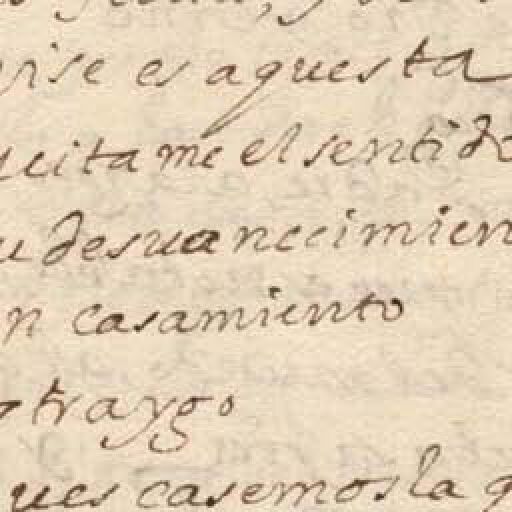 es aquesta
citame el sentido
desuanecimien
n casamiento
traygo
ues casemosla q